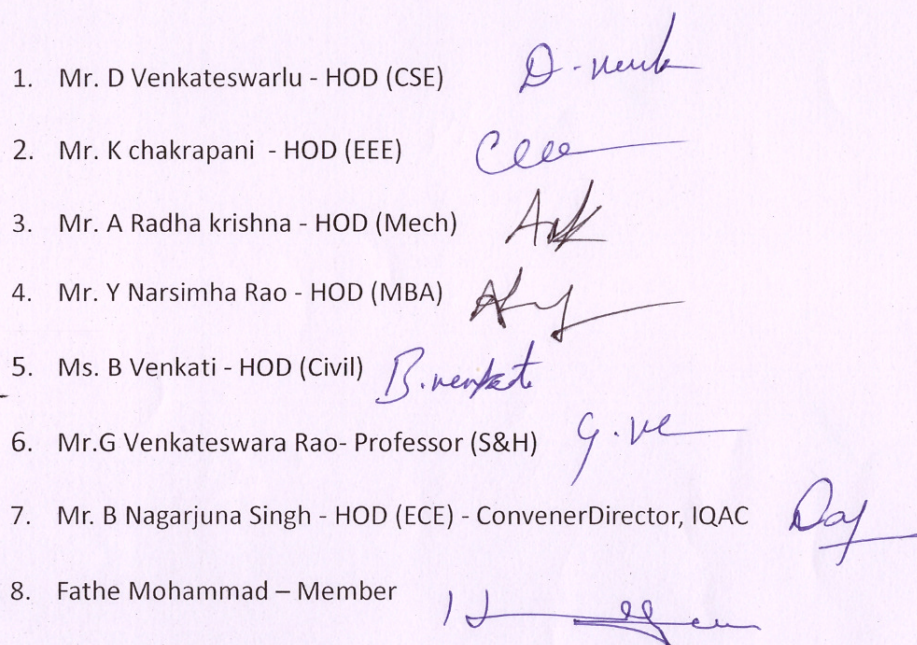 1. Mr. D Venkateswarlu - HOD (CSE) D-venk
2. Mr. K chakrapani - HOD (EEE)
3. Mr. A Radha krishna - HOD (Mech)
4. Mr. Y Narsimha Rao - HOD (MBA)
5. Ms. B Venkati - HOD (Civil) B.venkati
6. Mr.G Venkateswara Rao- Professor (S&H) G.ve
7. Mr. B Nagarjuna Singh - HOD (ECE) - ConvenerDirector, IQAC
8. Fathe Mohammad – Member